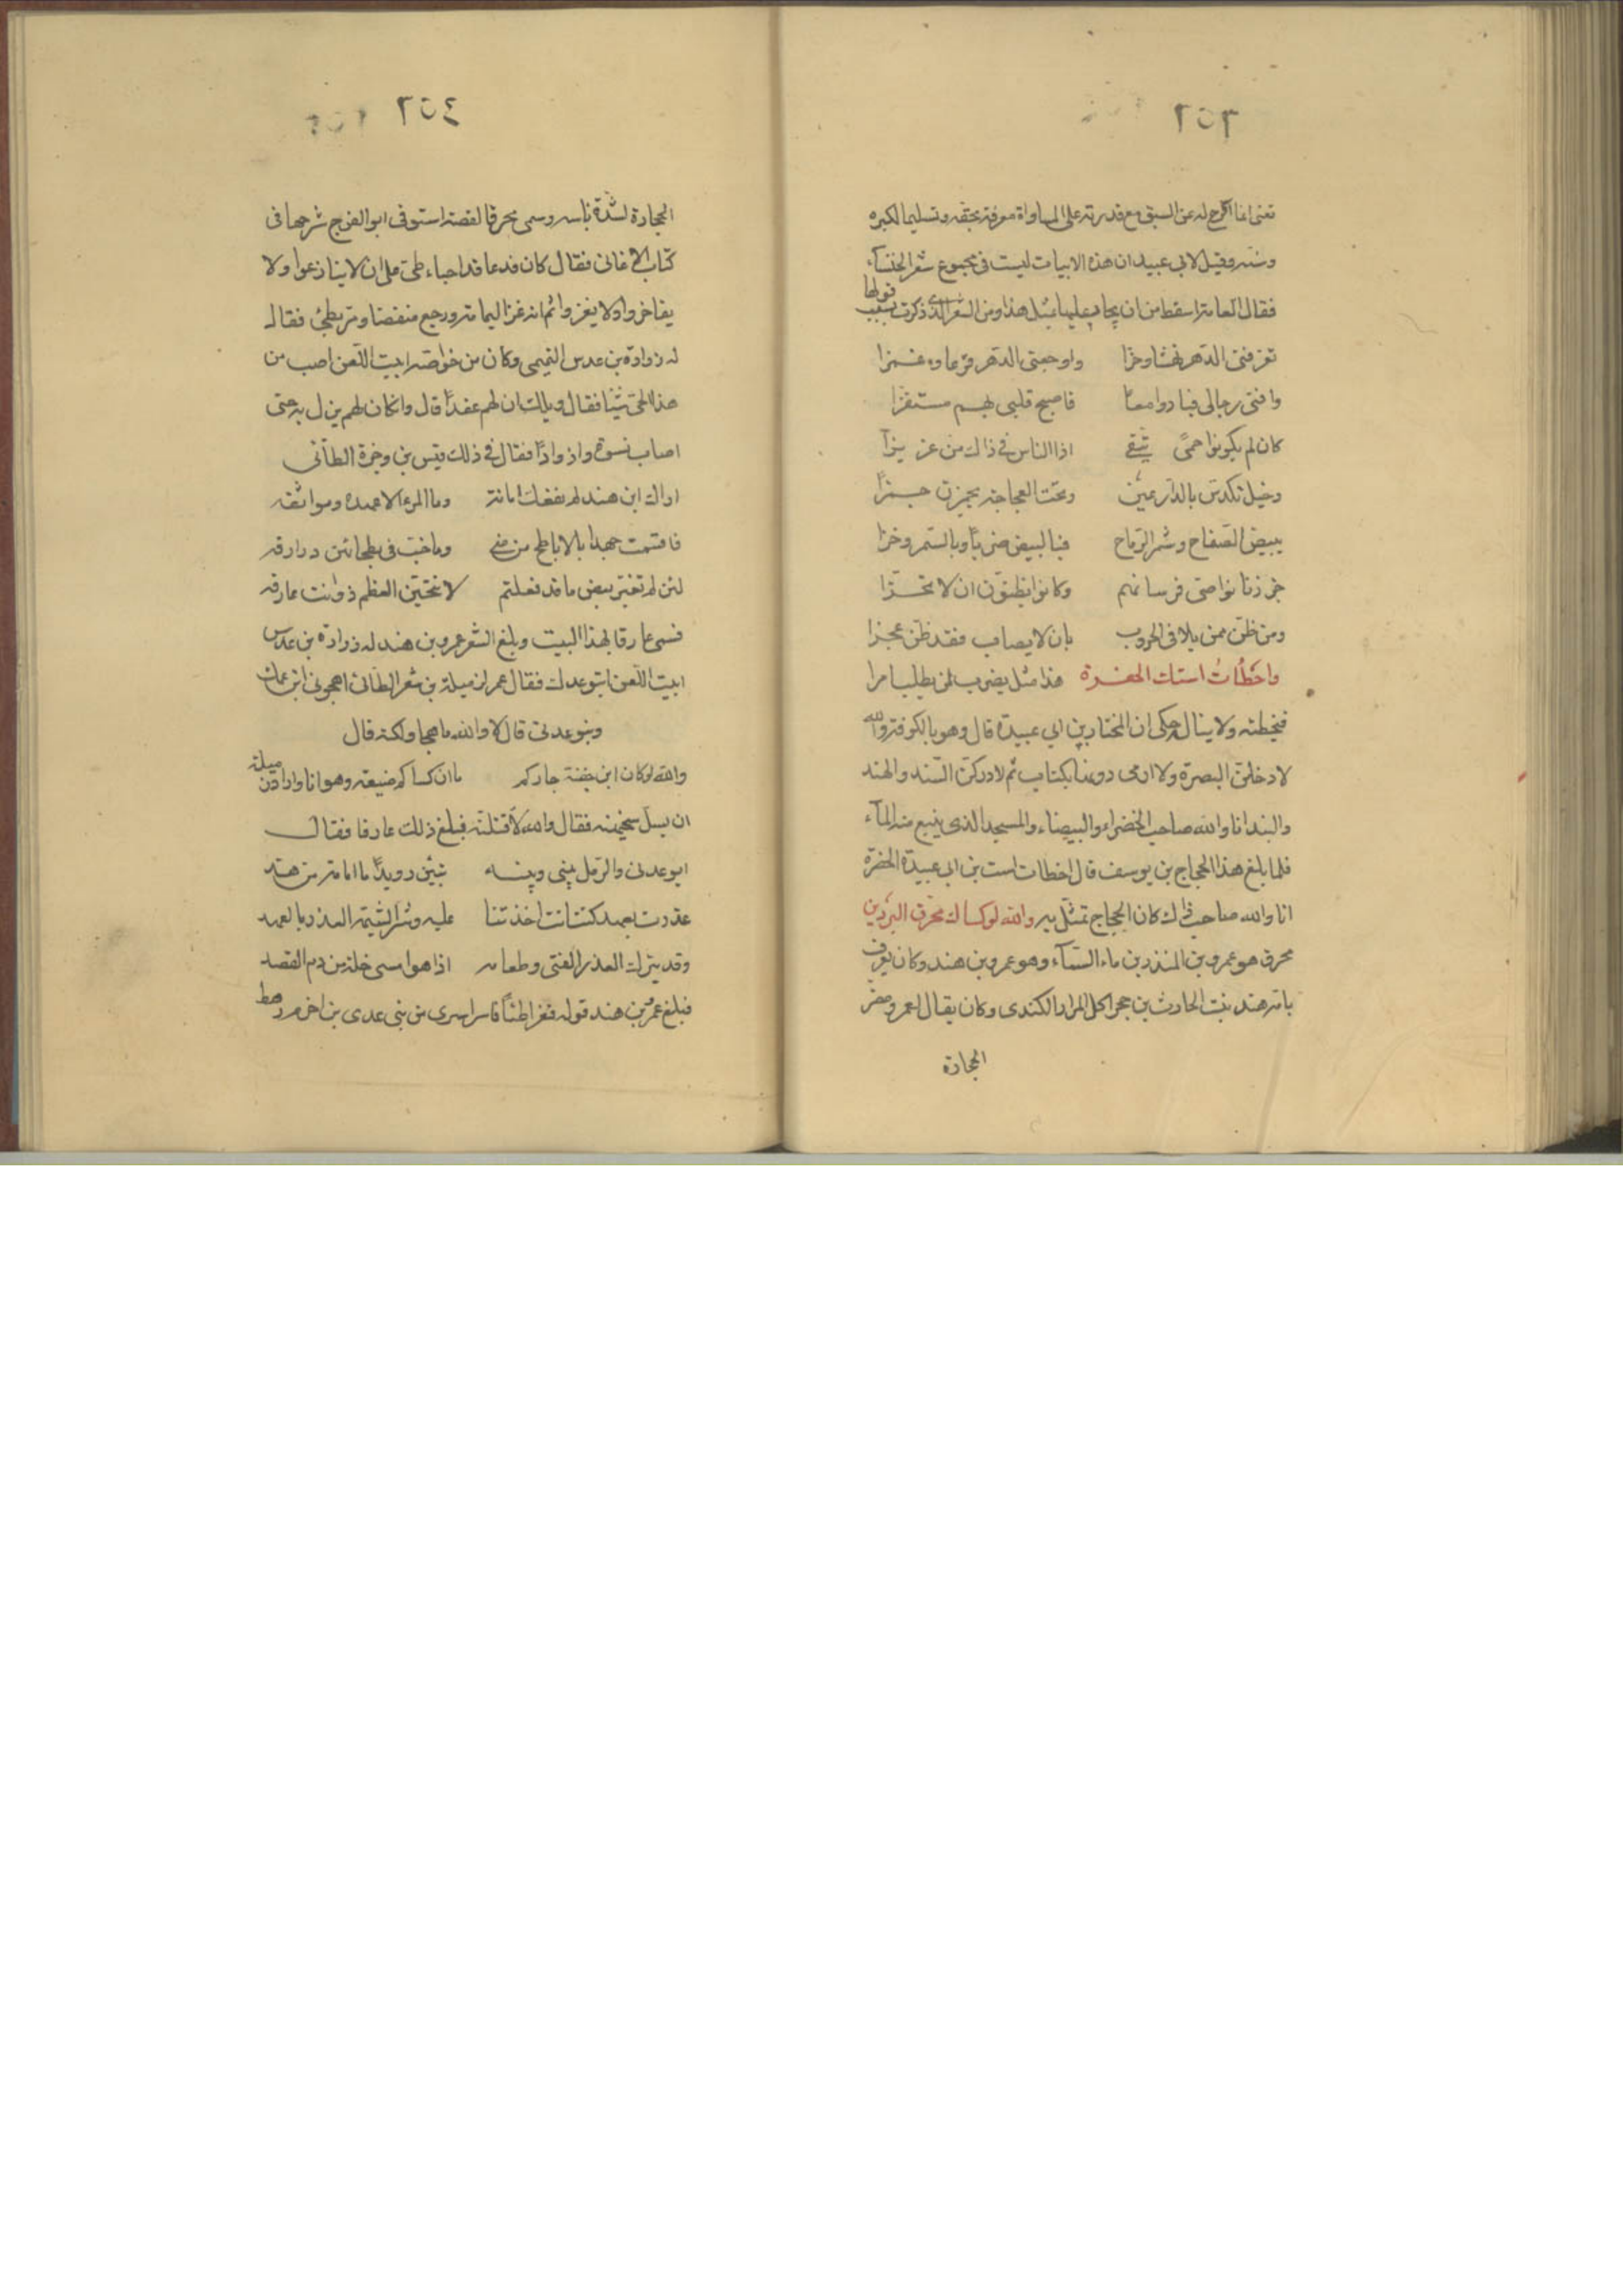 ٢٥٣
تعنى انما اكرج له عن السبق مع قدرته على المساواة معرفة بحقه وتسليما لكبره
وسنه وقيل لابى عبيد ان هذه الابيات ليست فى مجموع شعر الخنساء
فقال العامة اسقط من ان يجاب عليها بمثل هذا ومن الشعر الذى ذكرت بسببه قولها
تعرفنى الدهر نهشا وحزا واوجعنى الدهر قرعا وغمزا
وافنى رجالى فبادوا معا فاصبح قلبى بهم مستفزا
كان لم يكونوا حمى يتقى اذ الناس فى ذاك من عز بزا
وخيل تكدس بالدارعين وتحت العجاجة يجمزن جمزا
ببيض الصفاح وسمر الرماح فبالبيض ضربا وبالسمر وخزا
جززنا نواصى فرسانهم وكانوا يظنون ان لا تجزا
ومن ظن ممن يلاقى الحروب بان لا يصاب فقد ظن عجزا
واخطأت استك الحفرة هذا مثل يضرب لمن يطلب امرا
فيخطئه ولا يناله حكى ان المختار بن ابى عبيدة قال وهو بالكوفة والله
لادخلن البصرة ولا ارمى دونها بكتاب ثم لادركن السند والهند
والبند انا والله صاحب الخضراء والبيضاء والمسجد الذى ينبع منه الماء
فلما بلغ هذا الحجاج بن يوسف قال اخطات است بن ابى عبيدة الحفرة
انا والله صاحب ذاك كان الحجاج تمثل به والله لو كساك محرق البردين
محرق هو عمرو بن المنذر بن ماء السماء وهو عمرو بن هند وكان يعرف
بامه هند بنت الحارث بن حجر اكل المرار الكندى وكان يقال لعمرو مضر
الحجارة
٢٥٤
الحجارة لشدة باسه وسمى محرقا لقصة استوفى ابو الفرج شرحها فى
كتاب الاغانى فقال كان قد عاقد احياء طى على ان لا ينازعوا ولا
يفاخروا ولا يغزوا ثم انه غزا اليمامة ورجع منفضا ومر بطئ فقال
له زرارة بن عدس التميمى وكان من خواصه ابيت اللعن اصب من
هذا الحى شيئا فقال ويلك ان لهم عقدا قال وان كان لهم يزل به حتى
اصاب نسوة واذوادا فقال فى ذلك قيس بن وجرة الطائى
اراك ابن هند لم تعقك امانة وما المرء الا عهده ومواثقه
فاقسمت جهدا بالاباطح من منى وما خب فى بطحائهن درادقه
لئن لم تغير بعض ما قد فعلتم لانتحين العظم ذو انت عارقه
فسمى عارقا بهذا البيت وبلغ الشعر عمرو بن هند له زرارة بن عدس
ابيت اللعن ايتوعدك فقال عمر لرميلة بن شعر الطائى اهجونى ابن عمك
ويتوعدنى قال لا والله ما هجا ولكنه قال
والله لو كان ابن جفنة جاركم ما ان كساكم ضيعة وهوانا واراد رميلة
ان يسل سخيمته فقال والله لاقتلنه فبلغ ذلك عارقا فقال
ايوعدنى والرمل بينى وبينه تبين رويدا ما امامة من هند
غدرت بعهد كنت انت اخذتنا عليه وشر الشيمة الغدر بالعهد
وقد يترك الغدر الفتى وطعامه اذا هو امسى حلبة من دم الفصد
فبلغ عمرو بن هند قوله فغزا طئا فاسر اسرى من بنى عدى بن اخزم رهط